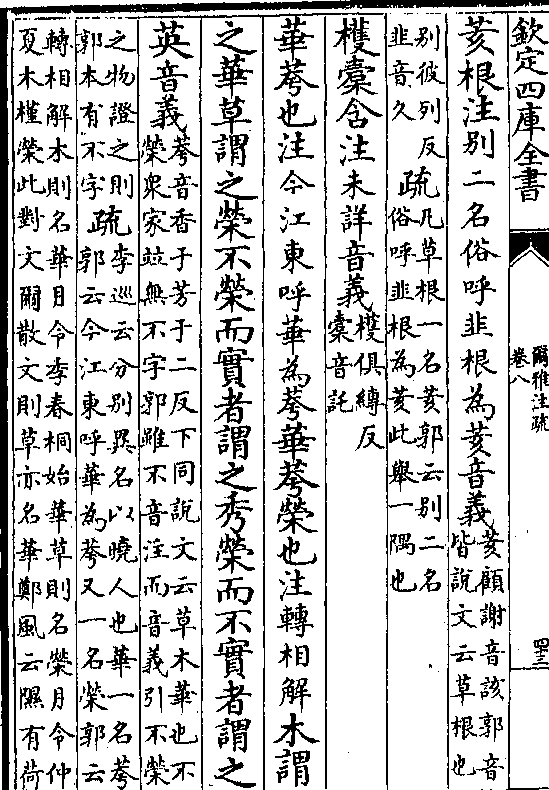 欽定四庫全書
爾雅注疏
卷八
四三
荄根注别二名俗呼韭根為荄音義荄顧謝音該郭音
皆說文云草根也
别彼列反
韭音久
疏凡草根一名荄郭云别二名
俗呼韭根為荄此舉一隅也
欔橐含注未詳音義欔俱縛反
橐音託
華荂也注今江東呼華為荂華荂榮也注轉相解木謂
之華草謂之榮不榮而實者謂之秀榮而不實者謂之
英音義荂音香于芳于二反下同說文云草木華也不
榮衆家竝無不字郭雖不音注而音義引不榮
之物證之則
郭本有不字
疏李巡云分别異名以曉人也華一名荂
郭云今江東呼華為荂又一名榮郭云
轉相解木則名華月令季春桐始華草則名榮月令仲
夏木槿榮此對文爾散文則草亦名華鄭風云隰有荷